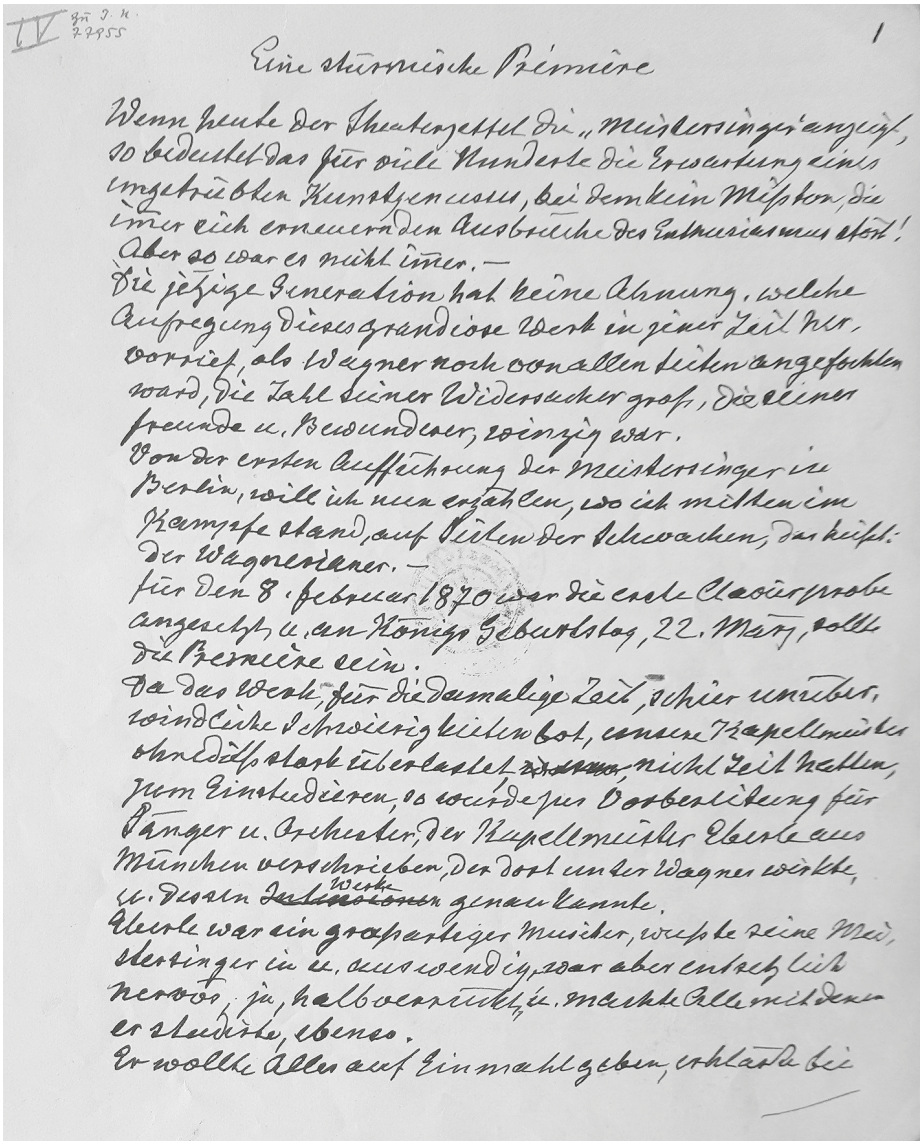 IV zu I. N.
77955
1
Eine stürmische Première
Wenn heute der Theaterzettel die „Meistersinger" anzeigt,
so bedeutet das für viele Hunderte die Erwartung eines
ungetrübten Kunstgenusses, bei dem kein Mißton, die
im̄er sich erneuernden Ausbrüche des Enthusiasmus stört!
Aber so war es nicht im̄er. —
Die jetzige Generation hat keine Ahnung, welche
Aufregung dieses grandiose Werk in jener Zeit her,
vorrief, als Wagner noch von allen Seiten angefochten
ward, die Zahl seiner Widersacher groß, die seiner
Freunde u. Bewunderer, winzig war.
Von der ersten Aufführung der Meistersinger in
Berlin, will ich nun erzählen, wo ich mitten im
Kampfe stand, auf Seiten der Schwachen, das heißt:
der Wagnerianer. —
Für den 8. Februar 1870 war die erste Clavierprobe
angesetzt, u. an Königs Geburtstag, 22. März, sollte
die Première sein.
Da das Werk, für die damalige Zeit, schier unüber,
windliche Schwierigkeiten bot, unsere Kapellmeister
ohnedieß stark überlastet, nicht Zeit hatten,
zum Einstudieren, so wurde zur Vorbereitung für
Sänger u. Orchester, der Kapellmeister Eberle aus
München verschrieben, der dort unter Wagner wirkte,
u. dessen Werke genau kannte.
Eberle war ein großartiger Musiker, wußte seine Mei,
stersinger in u. auswendig, war aber entsetzlich
nervös, ja, halbverrückt, u. machte Alle mit denen
er studirte, ebenso.
Er wollte Alles auf Einmahl geben, erklärte die